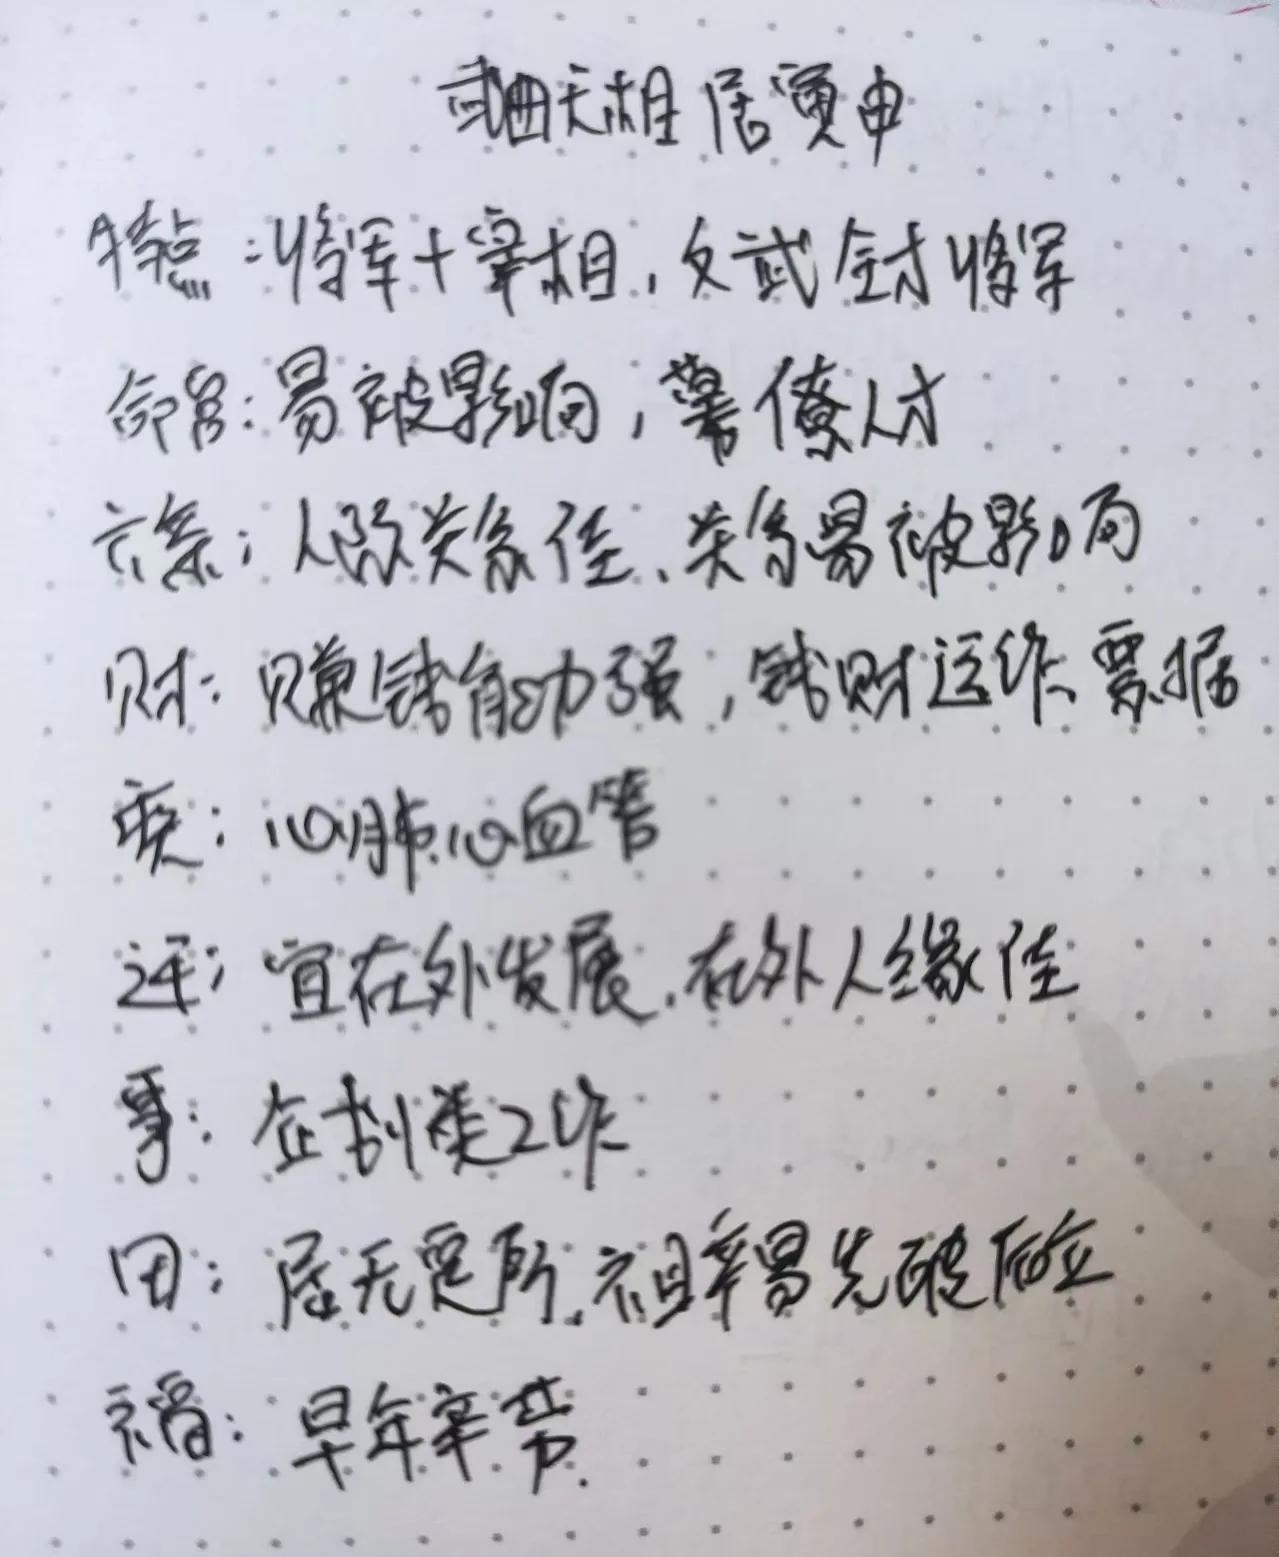 武曲天相居寅申
特点:将军+宰相,文武全才将军
命宫:易被影响,幕僚人才
六亲:人际关系佳、关系易被影响
财:赚钱能力强,钱财运作、票据
疾:心肺、心血管
迁:宜在外发展,在外人缘佳
事:企划类工作
田:居无定所,祖宅易先破后立
福:早年辛劳.